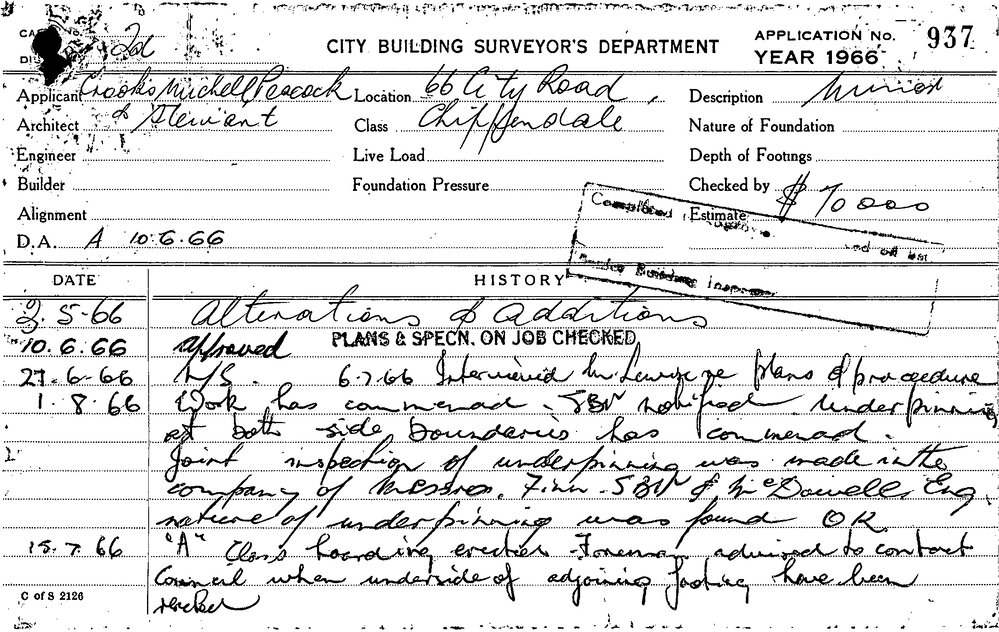 2d
CITY BUILDING SURVEYOR'S DEPARTMENT
APPLICATION No. 937
YEAR 1966
Applicant Crooks Michell Peacock
Location 66 City Road,
Description Minor
Architect & Stewart
Class Chippendale
Nature of Foundation
Engineer
Live Load
Depth of Footings
Builder
Foundation Pressure
Checked by
Alignment
Estimate $70000
D.A. A 10.6.66
Completed
Building Inspector
DATE HISTORY
2.5-66 Alterations & additions
10.6.66 approved PLANS & SPECN. ON JOB CHECKED
27.6-66 N/S. 6.7.66 Interviewed Mr. re plans & procedure
1.8.66 Work has commenced. SBV notified underpinning
at both side boundaries has commenced.
Joint inspection of underpinning was made in the
company of Messrs. Finn - SBV & McDowell, Eng.
nature of underpinning was found OK.
15.7.66 "A" Class hoarding erected - Foreman advised to contact
Council when underside of adjoining footing have been
reached
C of S 2126